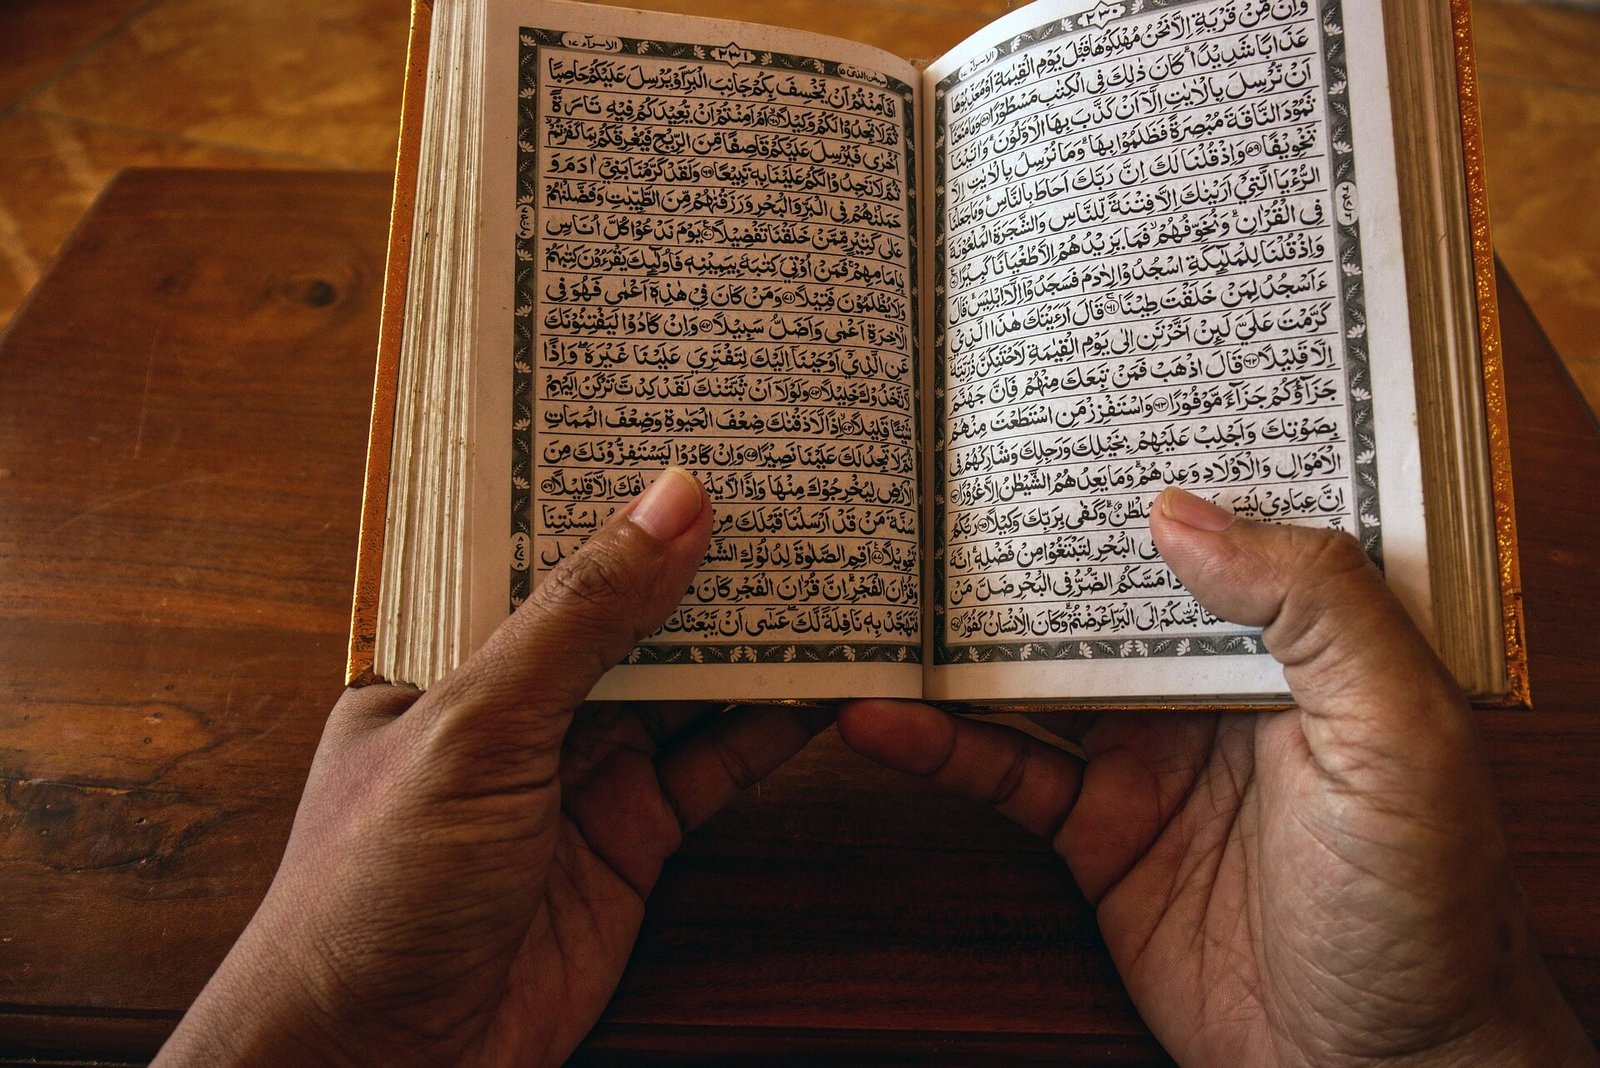 ٢٣٠
وَاِنْ مِّنْ قَرْيَةٍ اِلَّا نَحْنُ مُهْلِكُوْهَا قَبْلَ يَوْمِ الْقِيٰمَةِ اَوْ مُعَذِّبُوْهَا
عَذَابًا شَدِيْدًا ؕ كَانَ ذٰلِكَ فِى الْكِتٰبِ مَسْطُوْرًا ۝٥٨ وَمَا مَنَعَنَاۤ
اَنْ نُّرْسِلَ بِالْاٰيٰتِ اِلَّاۤ اَنْ كَذَّبَ بِهَا الْاَوَّلُوْنَ ؕ وَاٰتَيْنَا
ثَمُوْدَ النَّاقَةَ مُبْصِرَةً فَظَلَمُوْا بِهَا ؕ وَمَا نُرْسِلُ بِالْاٰيٰتِ اِلَّا
تَخْوِيْفًا ۝٥٩ وَاِذْ قُلْنَا لَكَ اِنَّ رَبَّكَ اَحَاطَ بِالنَّاسِ ؕ وَمَا جَعَلْنَا
الرُّءْيَا الَّتِيْۤ اَرَيْنٰكَ اِلَّا فِتْنَةً لِّلنَّاسِ وَالشَّجَرَةَ الْمَلْعُوْنَةَ
فِى الْقُرْاٰنِ ؕ وَنُخَوِّفُهُمْ ۙ فَمَا يَزِيْدُهُمْ اِلَّا طُغْيَانًا كَبِيْرًا ۝٦٠
وَاِذْ قُلْنَا لِلْمَلٰٓئِكَةِ اسْجُدُوْا لِاٰدَمَ فَسَجَدُوْۤا اِلَّاۤ اِبْلِيْسَ ؕ قَالَ
ءَاَسْجُدُ لِمَنْ خَلَقْتَ طِيْنًا ۝٦١ قَالَ اَرَءَيْتَكَ هٰذَا الَّذِيْ
كَرَّمْتَ عَلَيَّ لَئِنْ اَخَّرْتَنِ اِلٰى يَوْمِ الْقِيٰمَةِ لَاَحْتَنِكَنَّ ذُرِّيَّتَهٗۤ
اِلَّا قَلِيْلًا ۝٦٢ قَالَ اذْهَبْ فَمَنْ تَبِعَكَ مِنْهُمْ فَاِنَّ جَهَنَّمَ
جَزَآؤُكُمْ جَزَآءً مَّوْفُوْرًا ۝٦٣ وَاسْتَفْزِزْ مَنِ اسْتَطَعْتَ مِنْهُمْ
بِصَوْتِكَ وَاَجْلِبْ عَلَيْهِمْ بِخَيْلِكَ وَرَجِلِكَ وَشَارِكْهُمْ فِى
الْاَمْوَالِ وَالْاَوْلَادِ وَعِدْهُمْ ؕ وَمَا يَعِدُهُمُ الشَّيْطٰنُ اِلَّا غُرُوْرًا ۝٦٤
اِنَّ عِبَادِيْ لَيْسَ سُلْطٰنٌ ؕ وَكَفٰى بِرَبِّكَ وَكِيْلًا ۝٦٥ رَبُّكُمُ
الْبَحْرِ لِتَبْتَغُوْا مِنْ فَضْلِهٖ ؕ اِنَّهٗ
مَسَّكُمُ الضُّرُّ فِى الْبَحْرِ ضَلَّ مَنْ
نَجّٰىكُمْ اِلَى الْبَرِّ اَعْرَضْتُمْ ؕ وَكَانَ الْاِنْسَانُ كَفُوْرًا ۝٦٧
سبحن الذى ١٥
٢٣١
الاسرآء ١٧
اَفَاَمِنْتُمْ اَنْ يَّخْسِفَ بِكُمْ جَانِبَ الْبَرِّ اَوْ يُرْسِلَ عَلَيْكُمْ حَاصِبًا
ثُمَّ لَا تَجِدُوْا لَكُمْ وَكِيْلًا ۝٦٨ اَمْ اَمِنْتُمْ اَنْ يُّعِيْدَكُمْ فِيْهِ تَارَةً
اُخْرٰى فَيُرْسِلَ عَلَيْكُمْ قَاصِفًا مِّنَ الرِّيْحِ فَيُغْرِقَكُمْ بِمَا كَفَرْتُمْ
ثُمَّ لَا تَجِدُوْا لَكُمْ عَلَيْنَا بِهٖ تَبِيْعًا ۝٦٩ وَلَقَدْ كَرَّمْنَا بَنِيْۤ اٰدَمَ وَ
حَمَلْنٰهُمْ فِى الْبَرِّ وَالْبَحْرِ وَرَزَقْنٰهُمْ مِّنَ الطَّيِّبٰتِ وَفَضَّلْنٰهُمْ
عَلٰى كَثِيْرٍ مِّمَّنْ خَلَقْنَا تَفْضِيْلًا ۝٧٠ يَوْمَ نَدْعُوْا كُلَّ اُنَاسٍ
بِاِمَامِهِمْ ۚ فَمَنْ اُوْتِيَ كِتٰبَهٗ بِيَمِيْنِهٖ فَاُولٰٓئِكَ يَقْرَءُوْنَ كِتٰبَهُمْ
وَلَا يُظْلَمُوْنَ فَتِيْلًا ۝٧١ وَمَنْ كَانَ فِيْ هٰذِهٖۤ اَعْمٰى فَهُوَ فِى
الْاٰخِرَةِ اَعْمٰى وَاَضَلُّ سَبِيْلًا ۝٧٢ وَاِنْ كَادُوْا لَيَفْتِنُوْنَكَ
عَنِ الَّذِيْۤ اَوْحَيْنَاۤ اِلَيْكَ لِتَفْتَرِيَ عَلَيْنَا غَيْرَهٗ ۖ وَاِذًا
لَّاتَّخَذُوْكَ خَلِيْلًا ۝٧٣ وَلَوْلَاۤ اَنْ ثَبَّتْنٰكَ لَقَدْ كِدْتَّ تَرْكَنُ اِلَيْهِمْ
شَيْئًا قَلِيْلًا ۝٧٤ اِذًا لَّاَذَقْنٰكَ ضِعْفَ الْحَيٰوةِ وَضِعْفَ الْمَمَاتِ
ثُمَّ لَا تَجِدُ لَكَ عَلَيْنَا نَصِيْرًا ۝٧٥ وَاِنْ كَادُوْا لَيَسْتَفِزُّوْنَكَ مِنَ
الْاَرْضِ لِيُخْرِجُوْكَ مِنْهَا وَاِذًا لَّا اِلَّا قَلِيْلًا ۝٧٦
سُنَّةَ مَنْ قَدْ اَرْسَلْنَا قَبْلَكَ لِسُنَّتِنَا
تَحْوِيْلًا ۝٧٧ اَقِمِ الصَّلٰوةَ لِدُلُوْكِ
وَقُرْاٰنَ الْفَجْرِ ؕ اِنَّ قُرْاٰنَ الْفَجْرِ كَانَ
فَتَهَجَّدْ بِهٖ نَافِلَةً لَّكَ ۖ عَسٰۤى اَنْ يَّبْعَثَكَ